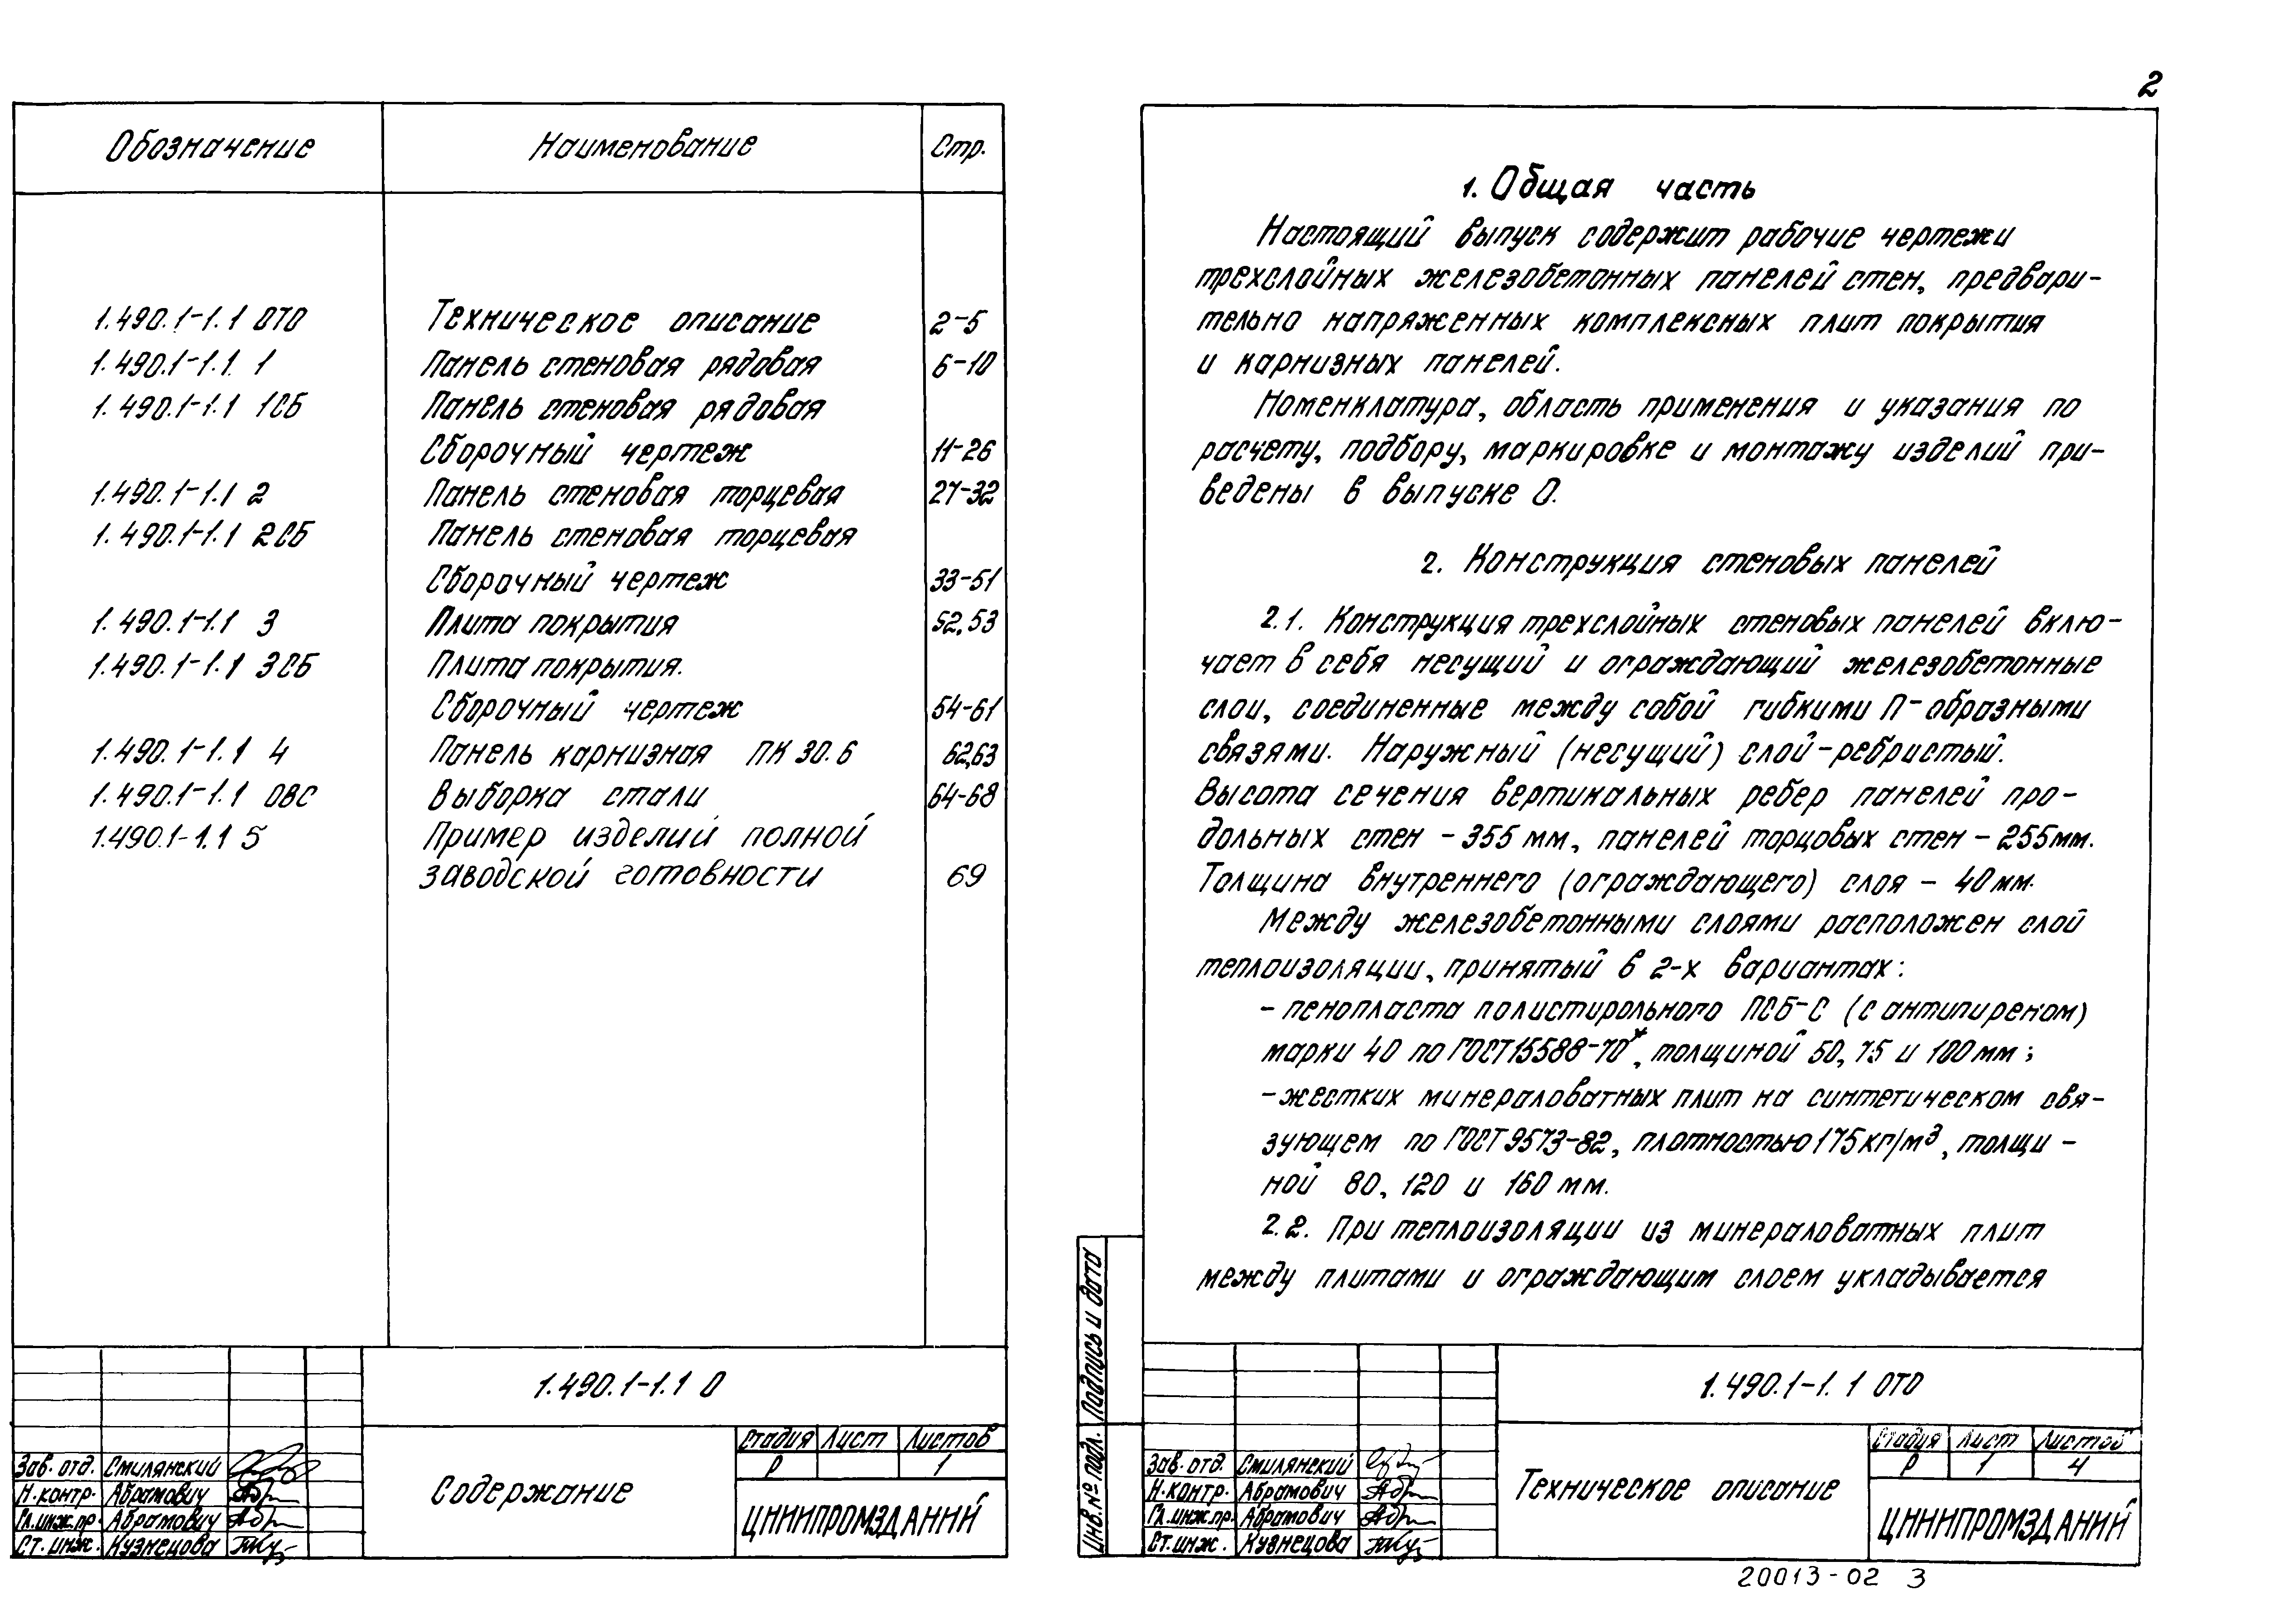 Обозначение Наименование Стр.
1.490.1-1.1 ОТО Техническое описание 2-5
1.490.1-1.1 1 Панель стеновая рядовая 6-10
1.490.1-1.1 1СБ Панель стеновая рядовая
Сборочный чертеж 11-26
1.490.1-1.1 2 Панель стеновая торцевая 27-32
1.490.1-1.1 2СБ Панель стеновая торцевая
Сборочный чертеж 33-51
1.490.1-1.1 3 Плита покрытия 52,53
1.490.1-1.1 3СБ Плита покрытия.
Сборочный чертеж 54-61
1.490.1-1.1 4 Панель карнизная ПК 30.6 62,63
1.490.1-1.1 ОВС Выборка стали 64-68
1.490.1-1.1 5 Пример изделий полной
заводской готовности 69
1.490.1-1.1 0
Стадия Лист Листов
Р 1
Зав. отд. Смилянский
Н.контр. Абрамович
Гл.инж.пр. Абрамович
Ст. инж. Кузнецова
Содержание
ЦНИИПРОМЗДАНИЙ
2
1. Общая часть
Настоящий выпуск содержит рабочие чертежи
трехслойных железобетонных панелей стен, предвари-
тельно напряженных комплексных плит покрытия
и карнизных панелей.
Номенклатура, область применения и указания по
расчету, подбору, маркировке и монтажу изделий при-
ведены в выпуске 0.
2. Конструкция стеновых панелей
2.1. Конструкция трехслойных стеновых панелей вклю-
чает в себя несущий и ограждающий железобетонные
слои, соединенные между собой гибкими П-образными
связями. Наружный (несущий) слой-ребристый.
Высота сечения вертикальных ребер панелей про-
дольных стен - 355 мм, панелей торцовых стен - 255мм.
Толщина внутреннего (ограждающего) слоя - 40мм.
Между железобетонными слоями расположен слой
теплоизоляции, принятый в 2-х вариантах:
- пенопласта полистирольного ПСБ-С (с антипиреном)
марки 40 по ГОСТ15588-70*, толщиной 50, 75 и 100мм;
-жестких минераловатных плит на синтетическом свя-
зующем по ГОСТ 9573-82, плотностью 175кг/м3, толщи-
ной 80, 120 и 160 мм.
2.2. При теплоизоляции из минераловатных плит
между плитами и ограждающим слоем укладывается
Подпись и дата
Инв.№ подл.
1.490.1-1.1 ОТО
Стадия Лист Листов
Р 1 4
Зав. отд. Смилянский
Н.контр. Абрамович
Гл.инж.пр. Абрамович
Ст.инж. Кузнецова
Техническое описание
ЦНИИПРОМЗДАНИЙ
20013-02 3